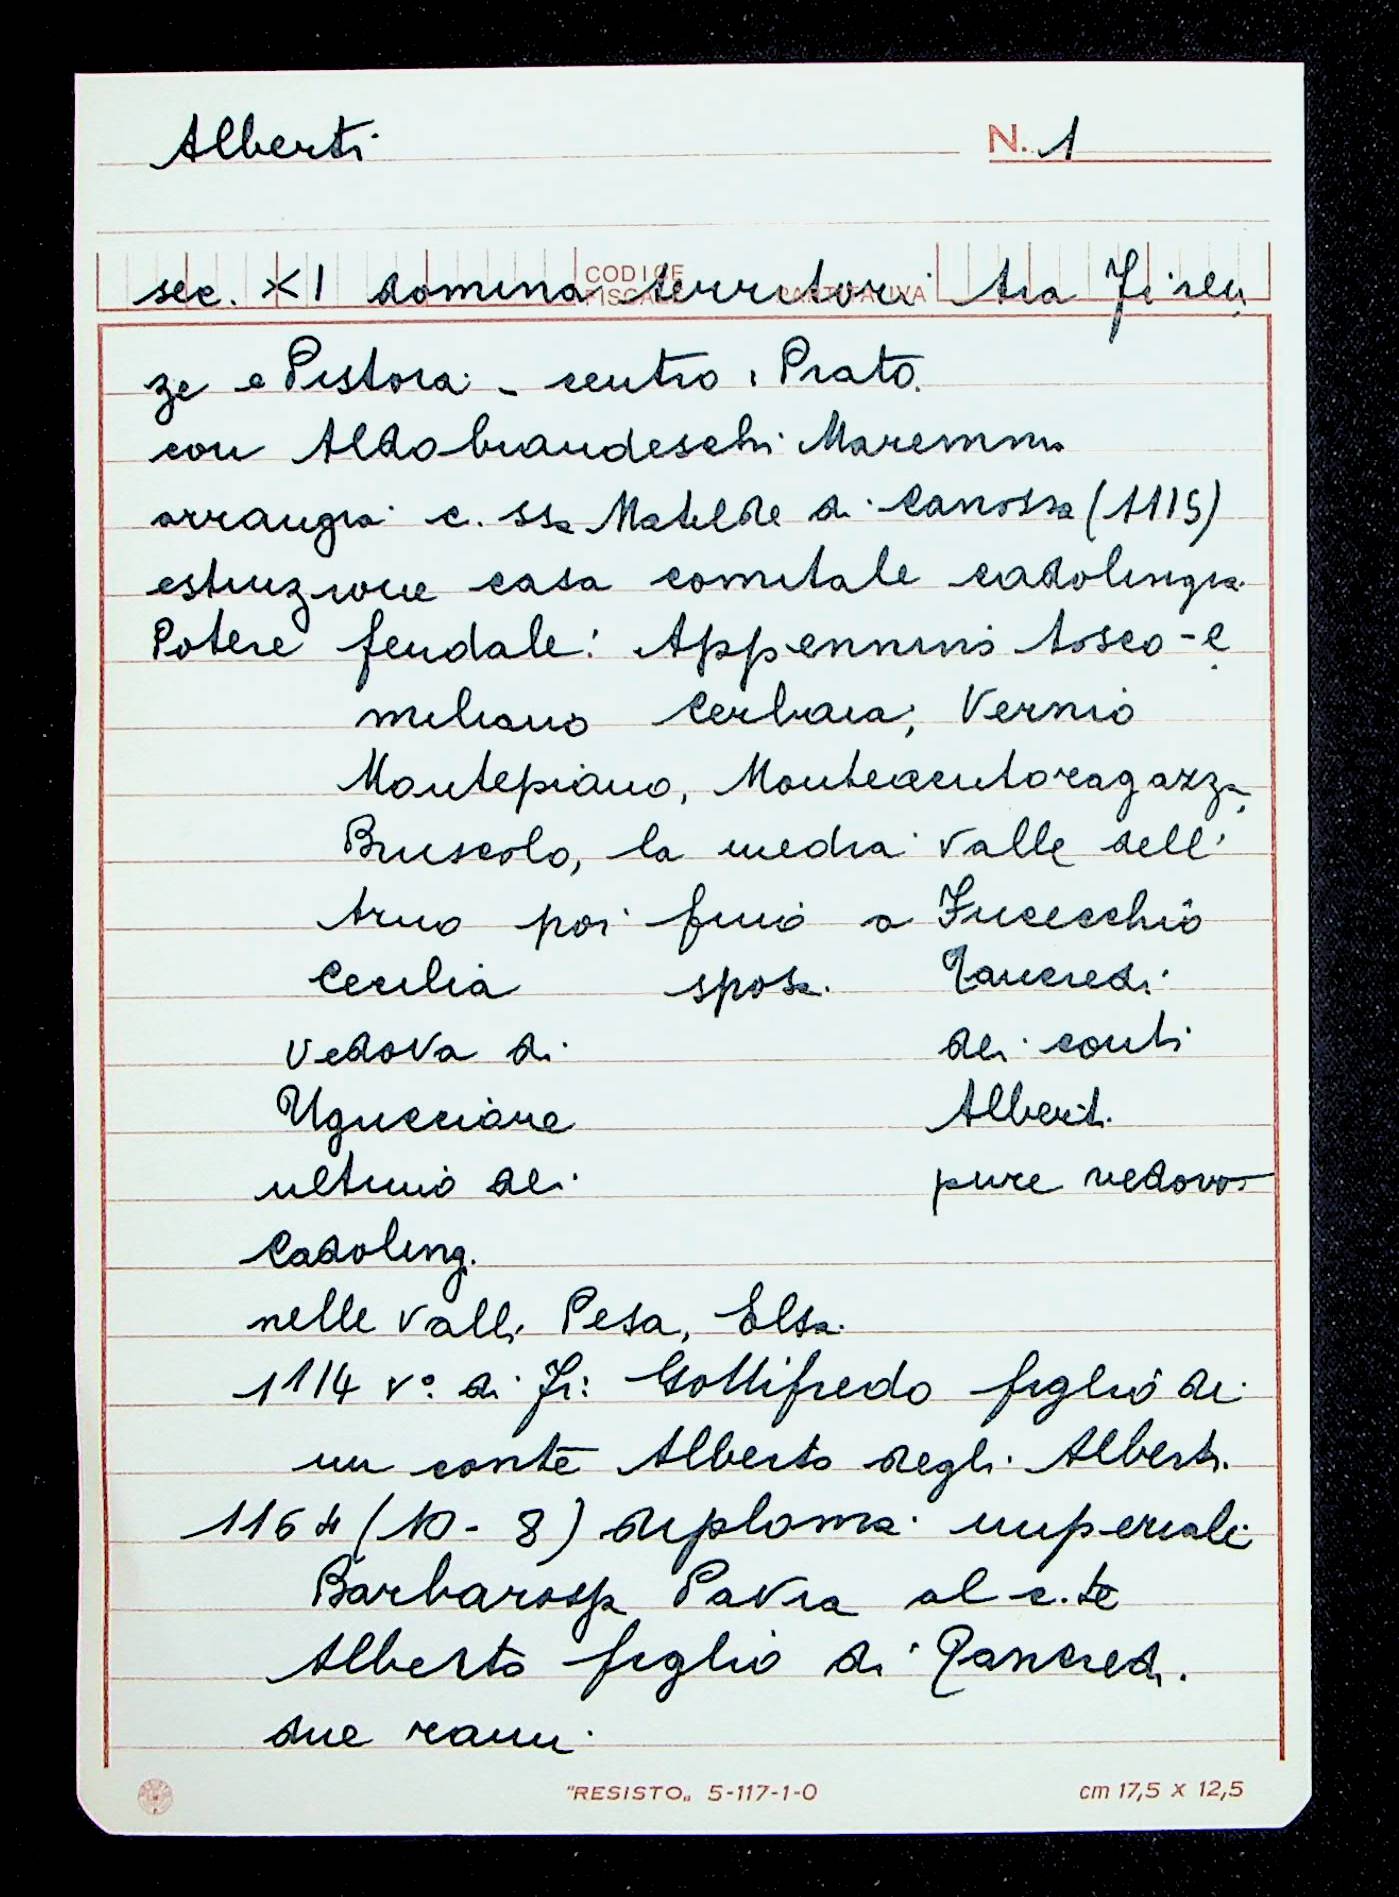 Alberti N. 1
CODICE FISCALE PARTITA IVA
sec. XI domina territori tra Firen
ze e Pistoia - centro: Prato.
con Aldobrandeschi Maremma
arrangia c.ssa Matelde di Canossa (1115)
estinzione casa comitale cadolingia
Potere feudale: Appennino tosco-e
miliano Cerbaia, Vernio
Montepiano, Monteacutoragazza,
Bruscolo, la media valle dell'
Arno poi fino a Fucecchio
Cecilia sposa Tancredi
vedova di dei conti
Uguccione Alberti
ultimo dei pure vedovo
Cadoling.
nelle valli Pesa, Elsa.
1114 v° di Fi: Gottifredo figlio di
un conte Alberto degli Alberti.
1164 (10-8) diploma imperiale
Barbarossa Pavia al c.te
Alberto figlio di Tancredi.
due rami
"RESISTO„ 5-117-1-0 cm 17,5 x 12,5